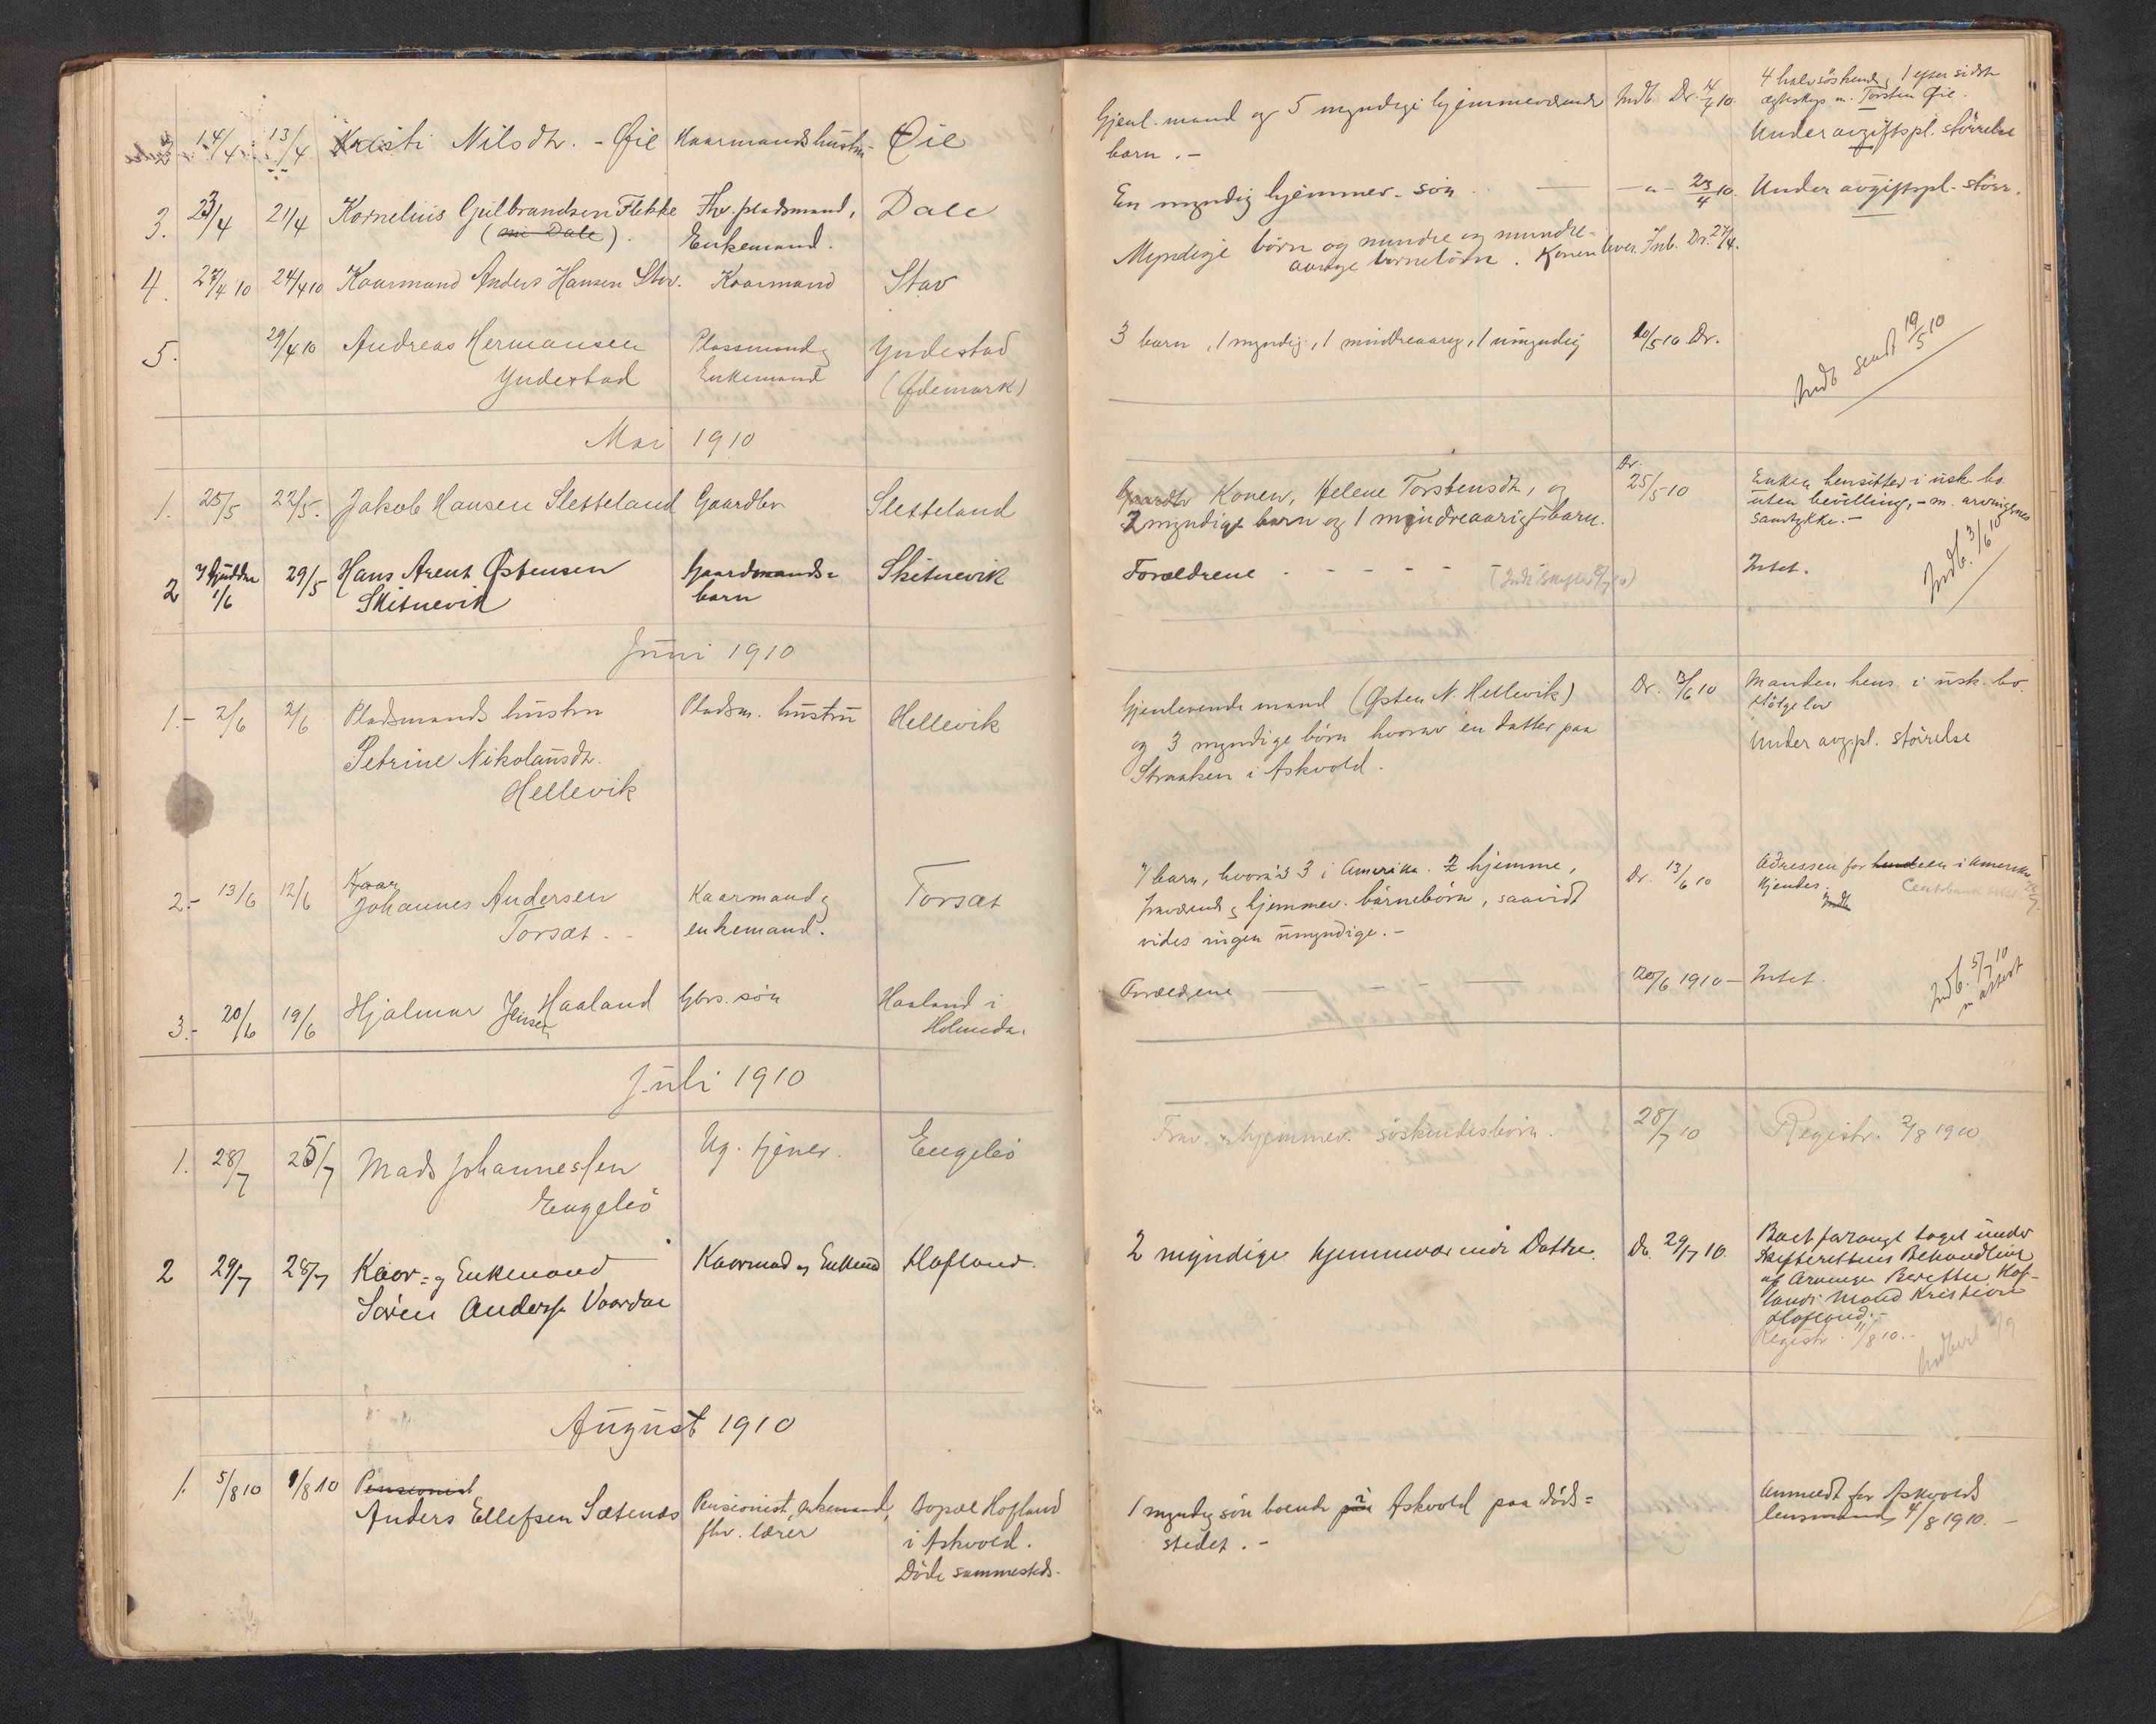 2 14/4 13/4 Kristi Nilsdtr. - Øie Kaarmandshustru - Øie
3. 23/4 21/4 Kornelius Gulbrandsen Flekke Fhv. pladsmand, Dale
(Dale). Enkemand.
4. 27/4 10 24/4 10 Kaarmand Anders Hansen Stav. Kaarmand Stav
5. 29/4 10 Andreas Hermansen Plassmand og Yndestad
Yndestad Enkemand (Ødemark)
Mai 1910
1. 25/5 22/5. Jakob Hansen Sletteland Gaardbr Sletteland
2 1/6 29/5 Hans Arent Østensen Gaardmands= Skitnevik
Skitnevik barn
Juni 1910
1.- 2/6 2/6 Pladsmands hustru Pladsm. hustru Hellevik
Petrine Nikolausdtr.
Hellevik
Kaar
2.- 13/6 12/6 Johannes Andersen Kaarmand og Torsæt
Torsæt. - enkemand.
3.- 20/6 19/6 Hjalmar Jensen Haaland Gbrs. søn Haaland i
Holmeda.
Juli 1910
1. 28/7 25/7 Mads Johannessen Ug. tjener. Engelsö
Engelsö
2 29/7 28/7 Kaar- og Enkemand Kaarmand og Enkemd Hofland.
Søren Anderss. Vaardal
August 1910
1. 5/8 10 1/8 10 Pensionist
Anders Ellefsen Sætenes Pensionist, enkemand, Bopæl Hofland
fhv. lærer i Askvold.
Döde sammesteds.
Gjenl. mand og 5 myndige hjemmeværende Indb. Dr. 14/4 10. 4 halvsöskende, 1 efter sidste
barn. - ægteskap m. Torsten Øie.
Under avgiftspl. störrelse
En myndig hjemmev. sön - - " - 23/4 10. Under avgiftspl. störr.
Myndige börn og mindre og mindre-
aarige barnebörn. Konen lever. Inb. Dr. 27/4.
3 barn, 1 myndig, 1 mindreaarig, 1 umyndig 10/5 10 Dr.
Indb sendt 19/5 10
Gaardbr Konen, Helene Torstensdtr, og Dr. 25/5 10 Enken hensitter i usk. bo
2 myndige barn og 1 mindreaarigt barn. uten bevilling, - m. arvingenes
samtykke. -
Forældrene - - - - - Intet. Indb. 3/6 10
Gjenlevende mand (Østen N. Hellevik) Dr. 13/6 10 Manden hens. i usk. bo.
og 3 myndige börn hvorav en datter paa ifölge lov
Straaken i Askvold. Under avg.pl. störrelse
7 barn, hvorav 3 i Amerika. 2 hjemme, Dr. 13/6 10 Adressen for i Amerika
fraværende og hjemmev. barnebörn, saavidt kjendes.
vides ingen umyndige. -
Forældrene - - - - 20/6 1910 - Intet. Indb. 5/7 10
m attest
Frav. hjemmev. söskendesbörn. 28/7 10 Registr. 2/8 1910
2 myndige hjemmeværende Dottre. Dr. 29/7 10. Boet forlangt taget under
Skifterettens Behandling
af Arvingen Berette Hof-
lands Mand Kristian
Hofland. -
Registr. 11/8 10. -
1 myndig sön boende i Askvold paa döds= Anmeldt for Askvolds
stedet. - lensmand 4/8 1910. -